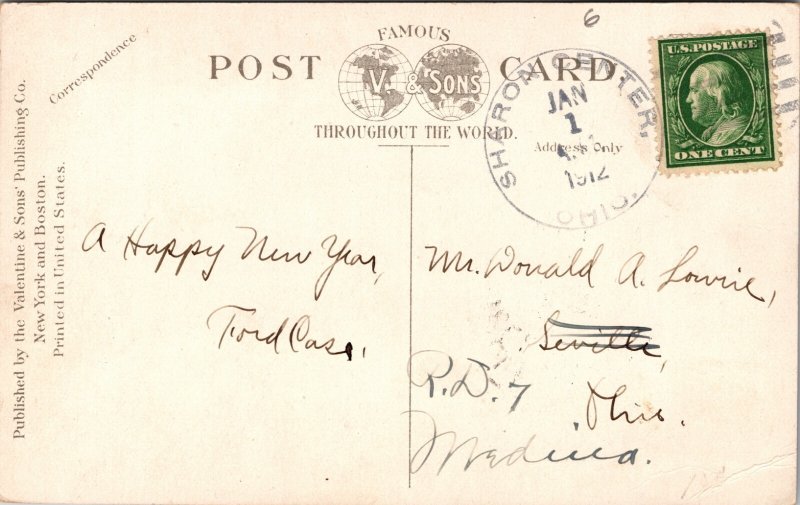 Published by the Valentine & Sons' Publishing Co.
New York and Boston.
Printed in United States.
Correspondence
FAMOUS
POST CARD.
V. & SONS
THROUGHOUT THE WORLD.
Address Only
6
SHARON CENTER, OHIO.
JAN
1
1912
U.S. POSTAGE
ONE CENT
A Happy New Year,
Ford Case.
Mr. Donald A. Lowrie,
Seville,
R.D. 7 Ohio.
Medina.